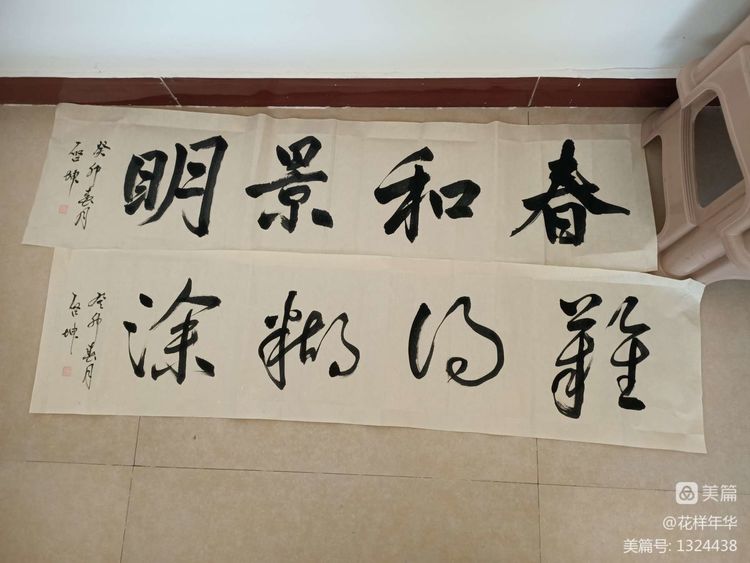 春和景明
癸卯春月
启坤
難得糊涂
癸卯春月
启坤
美篇
@花样年华
美篇号: 1324438